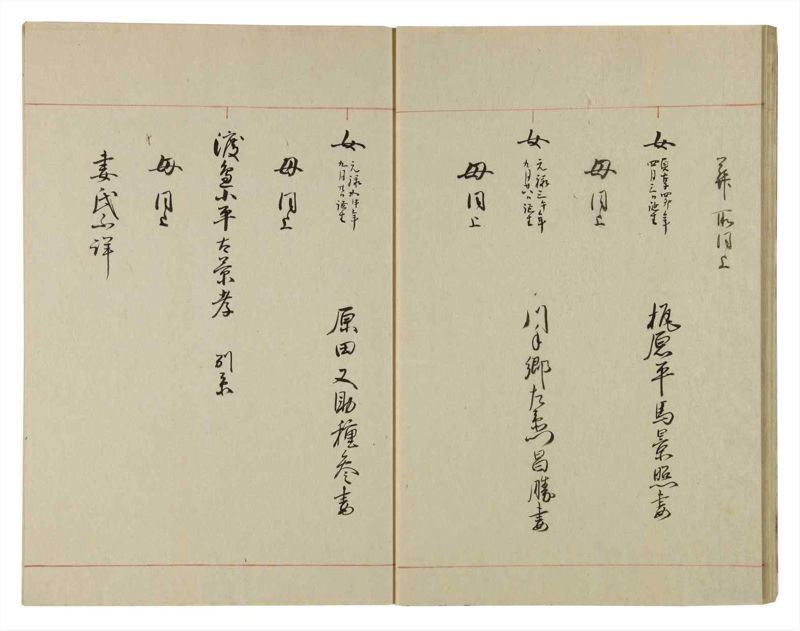 葬所同上
女 貞享四卯年
四月三日誕生
梶原平馬景照妻
母同上
女 元禄三午年
九月廿八日誕生
川手郷左衛門昌勝妻
母同上
女 元禄年
九月誕生
原田又助種参妻
母同上
渡邉小平太景孝 別系
母同上
妻氏不詳